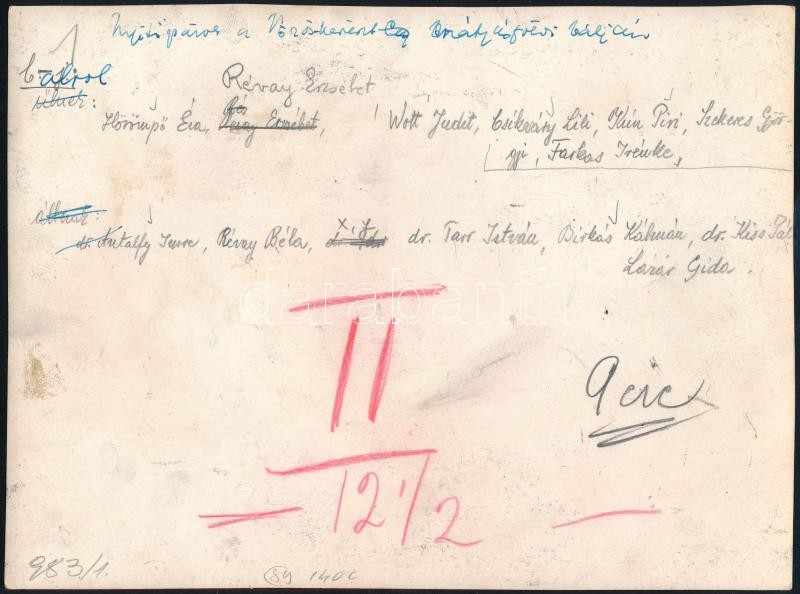 1
Nyitópáros a Vöröskereszt bálján
balról
ülnek: Révay Erzsébet
Hörömpő Éva, Révay Erzsébet, Wott Judit, Csikváry Lili, Kún Piri, Szekeres Györ-
gyi, Farkas Irénke,
állnak:
dr. Antalffy Imre, Révay Béla, dr. Tarr István, Birkás Kálmán, dr. Kiss Pál
Lázár Gida.
darabanth
II
12 1/2
9 cic
983/1.
89 140C